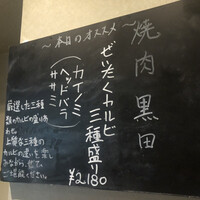 焼肉 黒田
〜本日のオススメ〜
ぜいたくカルビ
三種盛り
(カイノミ
ヘッドバラ
ササミ)
¥2180
厳選した三種
類のカルビの盛り合
わせ
上質な三種の
カルビの違いを楽し
みながら、ぜひ
ご堪能ください。